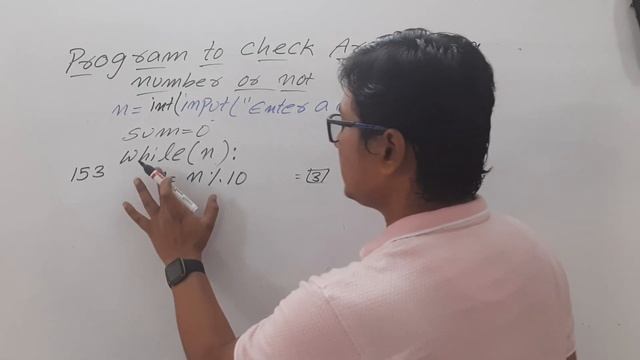 Program to check
number or not
n= int(input("Enter a
sum=0
while(n):
153 = n%10 = 3